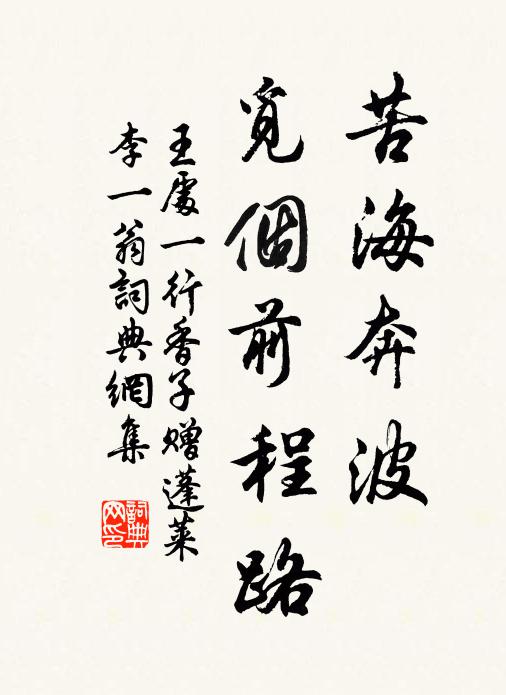 苦海奔波
覓個前程路
王處一行香子贈蓬萊
李一翁詞典網集
詞典
网印